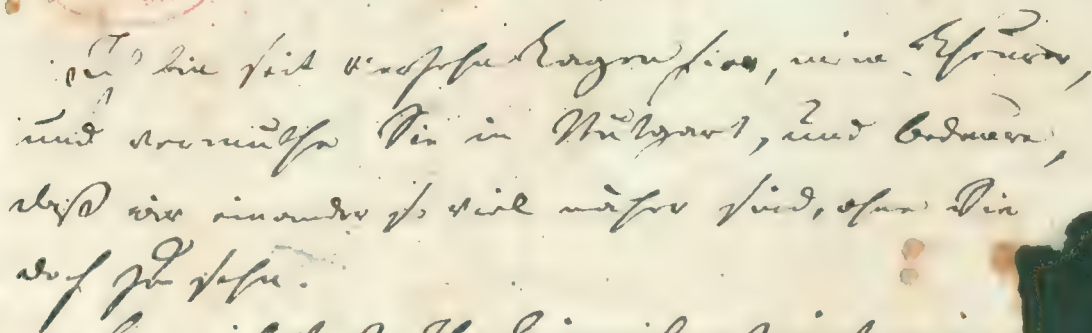 Ich bin seit vierzehn Tagen hier, mein Theurer,
und vermuthe Sie in Stutgart, und bedaure,
daß wir einander so viel näher sind, ohne Sie
doch zu sehn.